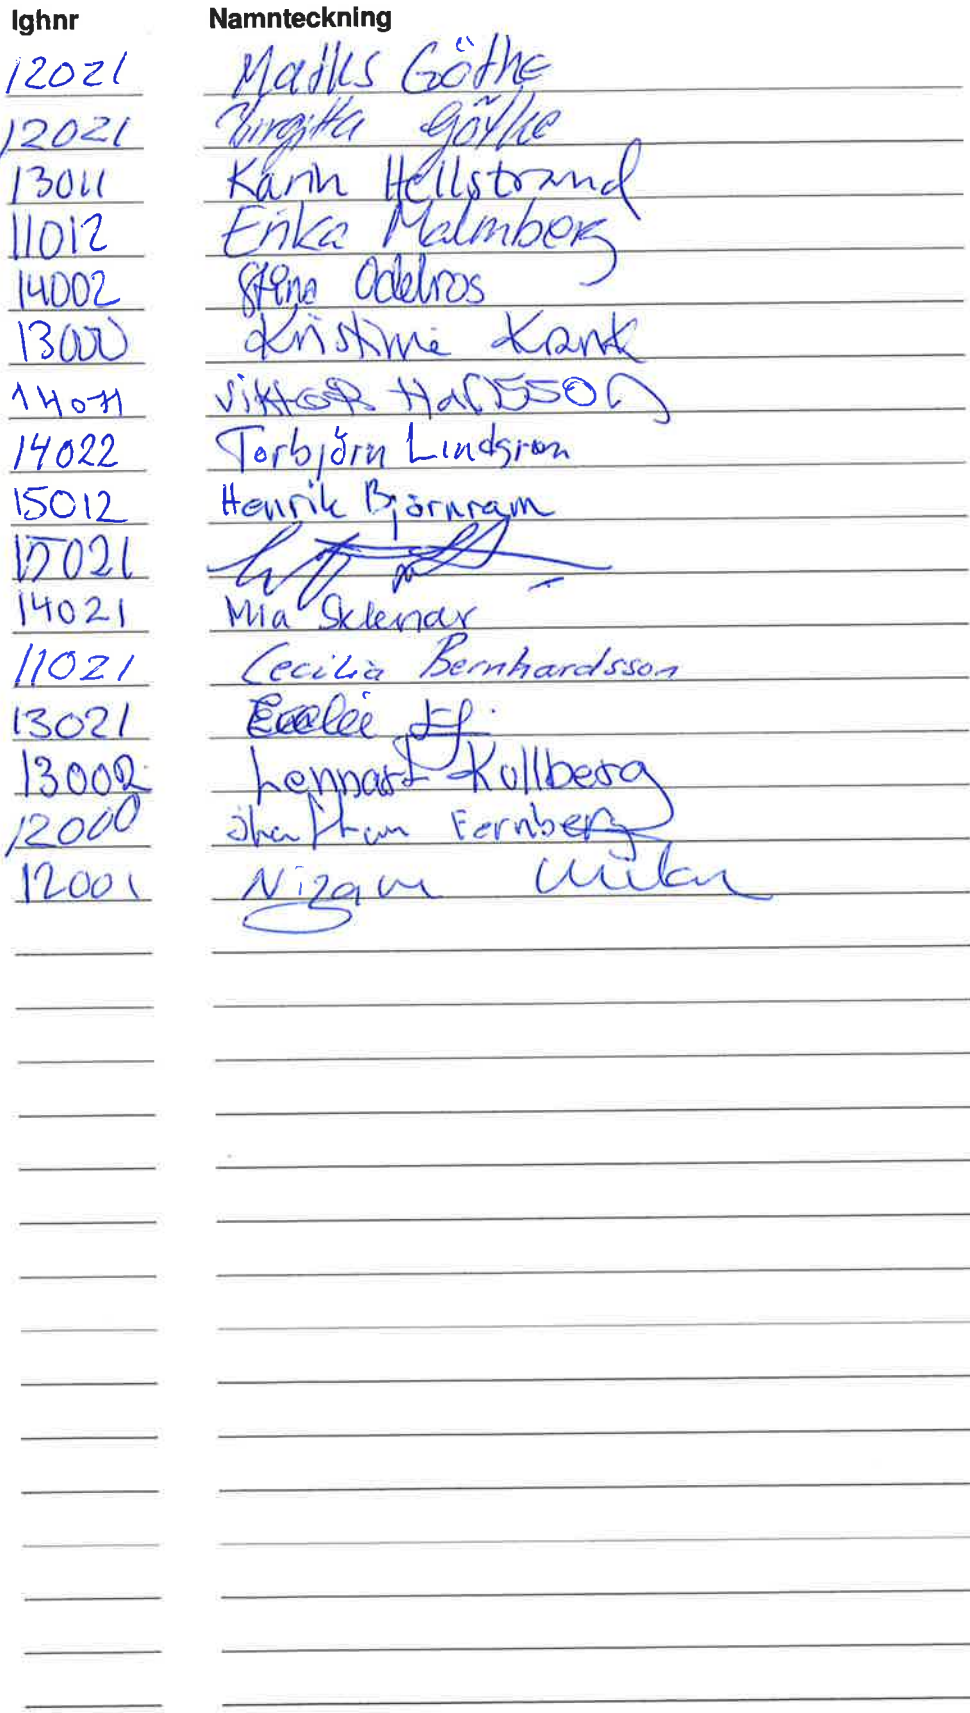 lghnr Namnteckning
12021 Göthe
12021 Birgitta Göthe
13011 Karin Hellstrand
11012 Erika Malmberg
14002 Stina Odelros
13000 Kristine Krank
14011 Viktor
14022 Torbjörn Lindgren
15012 Henrik Björnram
15021
14021 Mia Sklenar
11021 Cecilia Bernhardsson
13021
13002 Lennart Kullberg
12000 Fernberg
12001 Nizam